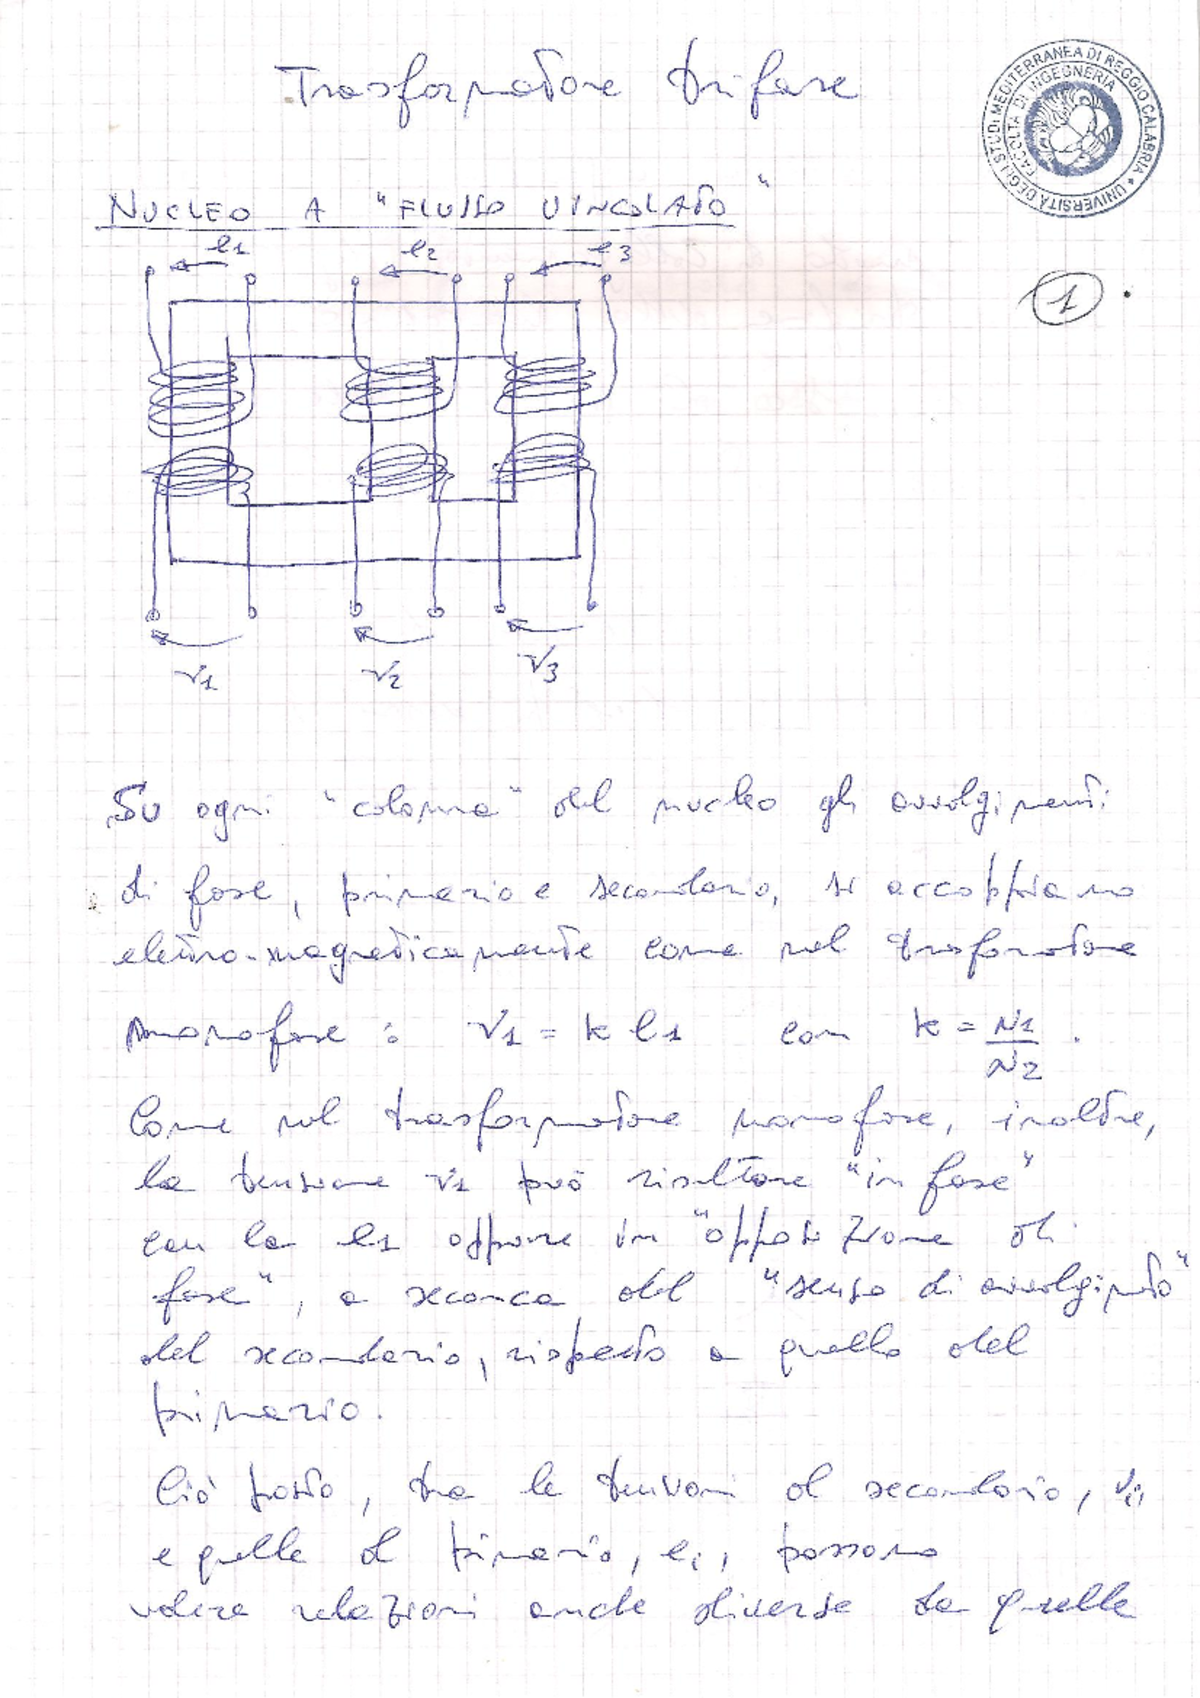 Trasformatore trifase
UNIVERSITÀ DEGLI STUDI MEDITERRANEA DI REGGIO CALABRIA •
FACOLTÀ DI INGEGNERIA
NUCLEO A "FLUSSO VINCOLATO"
e1 e2 e3
1 .
v1 v2 v3
Su ogni "colonna" del nucleo gli avvolgimenti
di fase, primario e secondario, si accoppiano
elettro-magneticamente come nel trasformatore
monofase : v1 = k e1 con k = N1/N2 .
Come nel trasformatore monofase, inoltre,
la tensione v1 può risultare "in fase"
con la e1 oppure in "opposizione di
fase", a seconda del "senso di avvolgimento"
del secondario, rispetto a quello del
primario.
Ciò posto, tra le tensioni al secondario, vi,
e quelle al primario, ei, possono
valere relazioni anche diverse da quelle